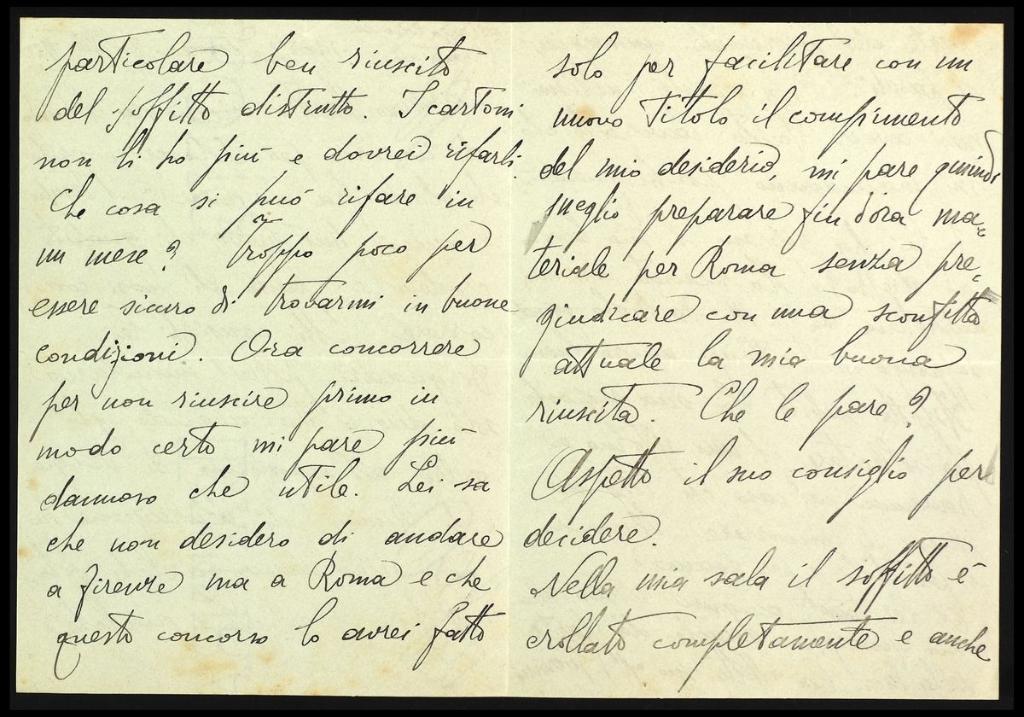 particolare ben riuscito
del soffitto distrutto. I cartoni
non li ho più e dovrei rifarli.
Che cosa si può rifare in
un mese? Troppo poco per
essere sicuro di trovarmi in buone
condizioni. Ora concorrere
per non riuscire primo in
modo certo mi pare più
dannoso che utile. Lei sa
che non desidero di andare
a Firenze ma a Roma e che
questo concorso lo avrei fatto
solo per facilitare con un
nuovo Titolo il compimento
del mio desiderio, mi pare quindi
meglio preparare fin d'ora ma=
teriale per Roma senza pre=
giudicare con una sconfitta
attuale la mia buona
riuscita. Che le pare?
Aspetto il suo consiglio per
decidere.
Nella mia sala il soffitto è
crollato completamente e anche